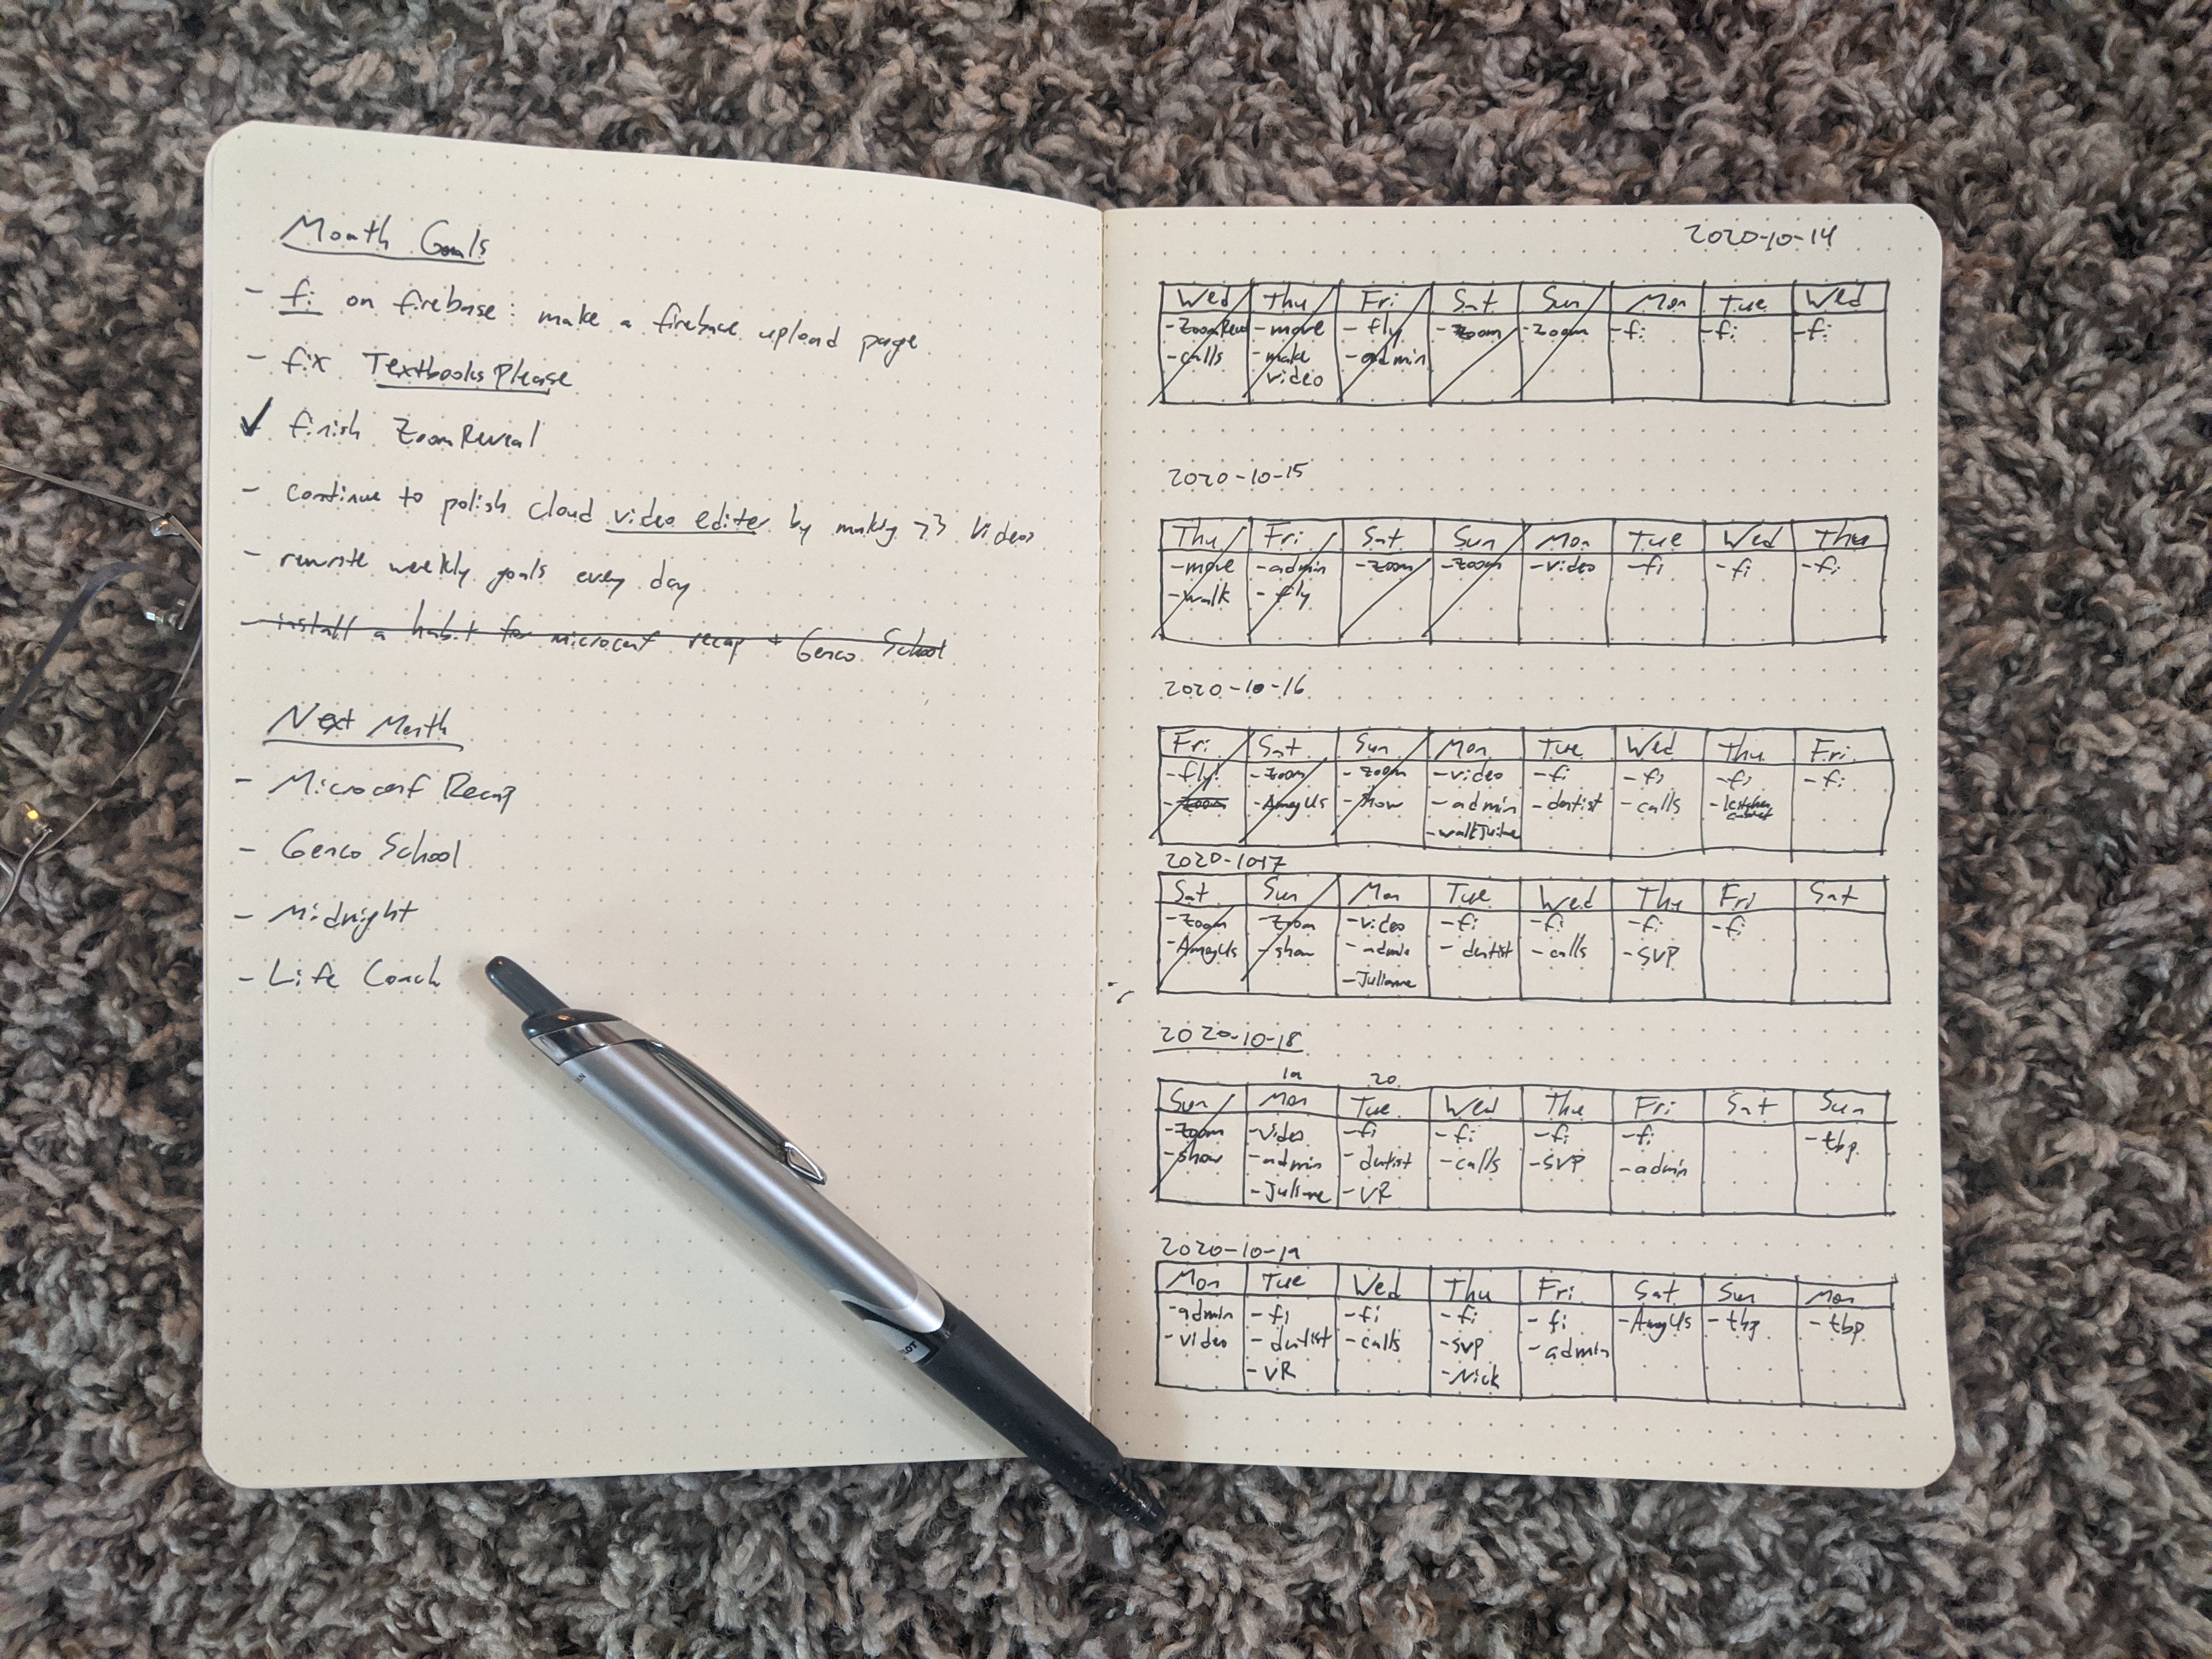 Month Goals
- fi on firebase: make a firebase upload page
- fix TextbooksPlease
✓ finish ZoomReveal
- continue to polish cloud video editor by making >3 videos
- rewrite weekly goals every day
- install a habit for microconf recap + Genco School
Next Month
- Microconf Recap
- Genco School
- Midnight
- Life Coach
2020-10-14
Wed Thu Fri Sat Sun Mon Tue Wed
- move - fly - zoom - zoom - fi - fi - fi
- calls - make - admin
video
2020-10-15
Thu Fri Sat Sun Mon Tue Wed Thu
- move - admin - zoom - zoom - video - fi - fi - fi
- walk - fly
2020-10-16
Fri Sat Sun Mon Tue Wed Thu Fri
- fly! - zoom - zoom - video - fi - fi - fi - fi
- zoom - AmogUs - show - admin - dentist - calls
2020-10-17
Sat Sun Mon Tue Wed Thu Fri Sat
- zoom - zoom - video - fi - fi - fi - fi
- AmogUs - show - admin - dentist - calls - SVP
- Julianne
2020-10-18
19 20
Sun Mon Tue Wed Thu Fri Sat Sun
- zoom - video - fi - fi - fi - fi - tbp
- show - admin - dentist - calls - SVP - admin
- VR
2020-10-19
Mon Tue Wed Thu Fri Sat Sun Mon
- admin - fi - fi - fi - fi - AmogUs - tbp - tbp
- video - dentist - calls - SVP - admin
- VR - Nick